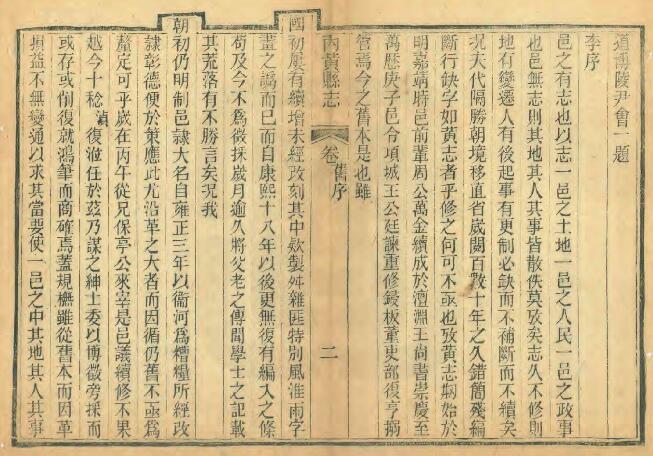 道博陵尹會一題
李序
邑之有志也以志一邑之土地一邑之人民一邑之政事
也邑無志則其地其人其事皆散佚莫攷矣志久不修則
地有變遷人有後起事有更制必缺而不補斷而不續矣
况代隔勝朝境移直省歲閱百數十年之久錯簡殘編
斷行缺字如黃志者乎修之何可不亟也攷黃志剏始於
明嘉靖時邑前輩周公萬金續成於澶淵王尚書崇慶至
萬歷庚子邑令項城王公廷諫重修鋟板董吏部復亨捐
管焉今之舊本是也雖
內黃縣志 卷 舊序 二
國初屢有續增未經改刻其中欵製舛雜匪特別風淮雨字
畫之譌而已而自康熙十八年以後更無復有編入之條
苟及今不為採歲月逾久將父老之傳聞學士之記載
其荒落有不勝言矣况我
朝初仍明制邑隸大名自雍正三年以衞河為糧所經改
隸彰德便於策應此尤沿革之大者而因循仍舊不亟為
釐定可乎歲在丙午從兄保亭公來宰是邑議續修不果
越今十稔禎復涖任於茲乃謀之紳士委以博徵旁採而
或存或復就鴻筆而商確焉蓋規橅雖從舊本而因革
損益不無變通以求其當要使一邑之中其地其人其事